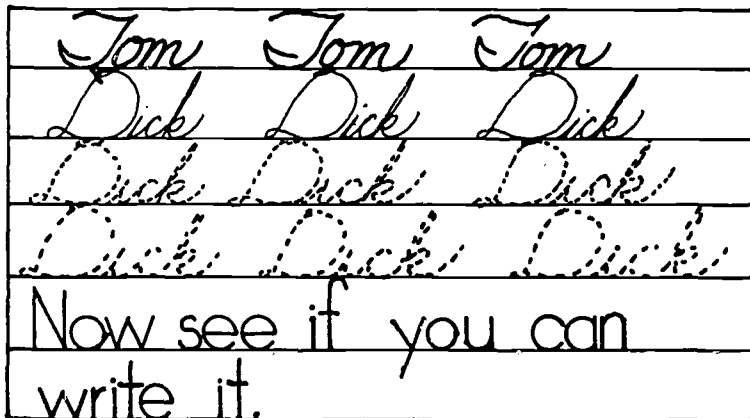 Tom Tom Tom
Dick Dick Dick
Dick Dick Dick
Dick Dick Dick
Now see if you can
write it.